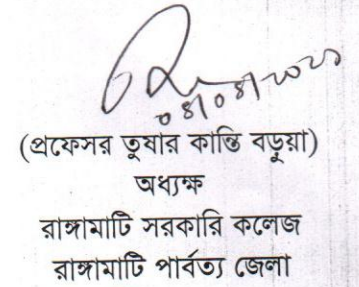 ০৪/০৪/২০২০
(প্রফেসর তুষার কান্তি বড়ুয়া)
অধ্যক্ষ
রাঙ্গামাটি সরকারি কলেজ
রাঙ্গামাটি পার্বত্য জেলা